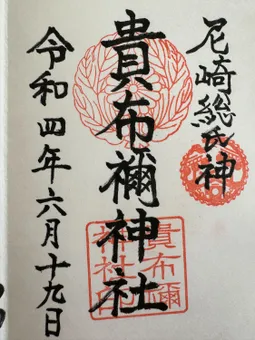 尼崎総氏神
貴布禰神社
令和四年六月十九日
貴布禰
神社印